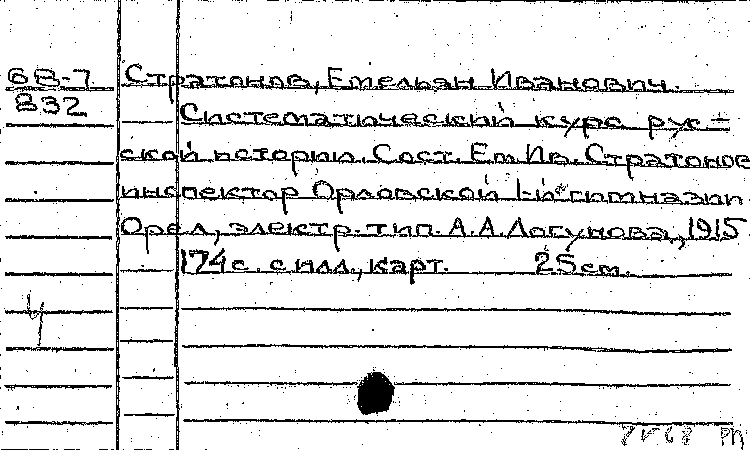 68-7
832
Стратонов, Емельян Иванович.
Систематический курс рус-
ской истории. Сост. Ем. Ив. Стратонов
инспектор Орловской 1-й гимназии.
Орел, электр. тип. А. А. Логунова, 1915
174 с. с илл., карт. 25 см.
4